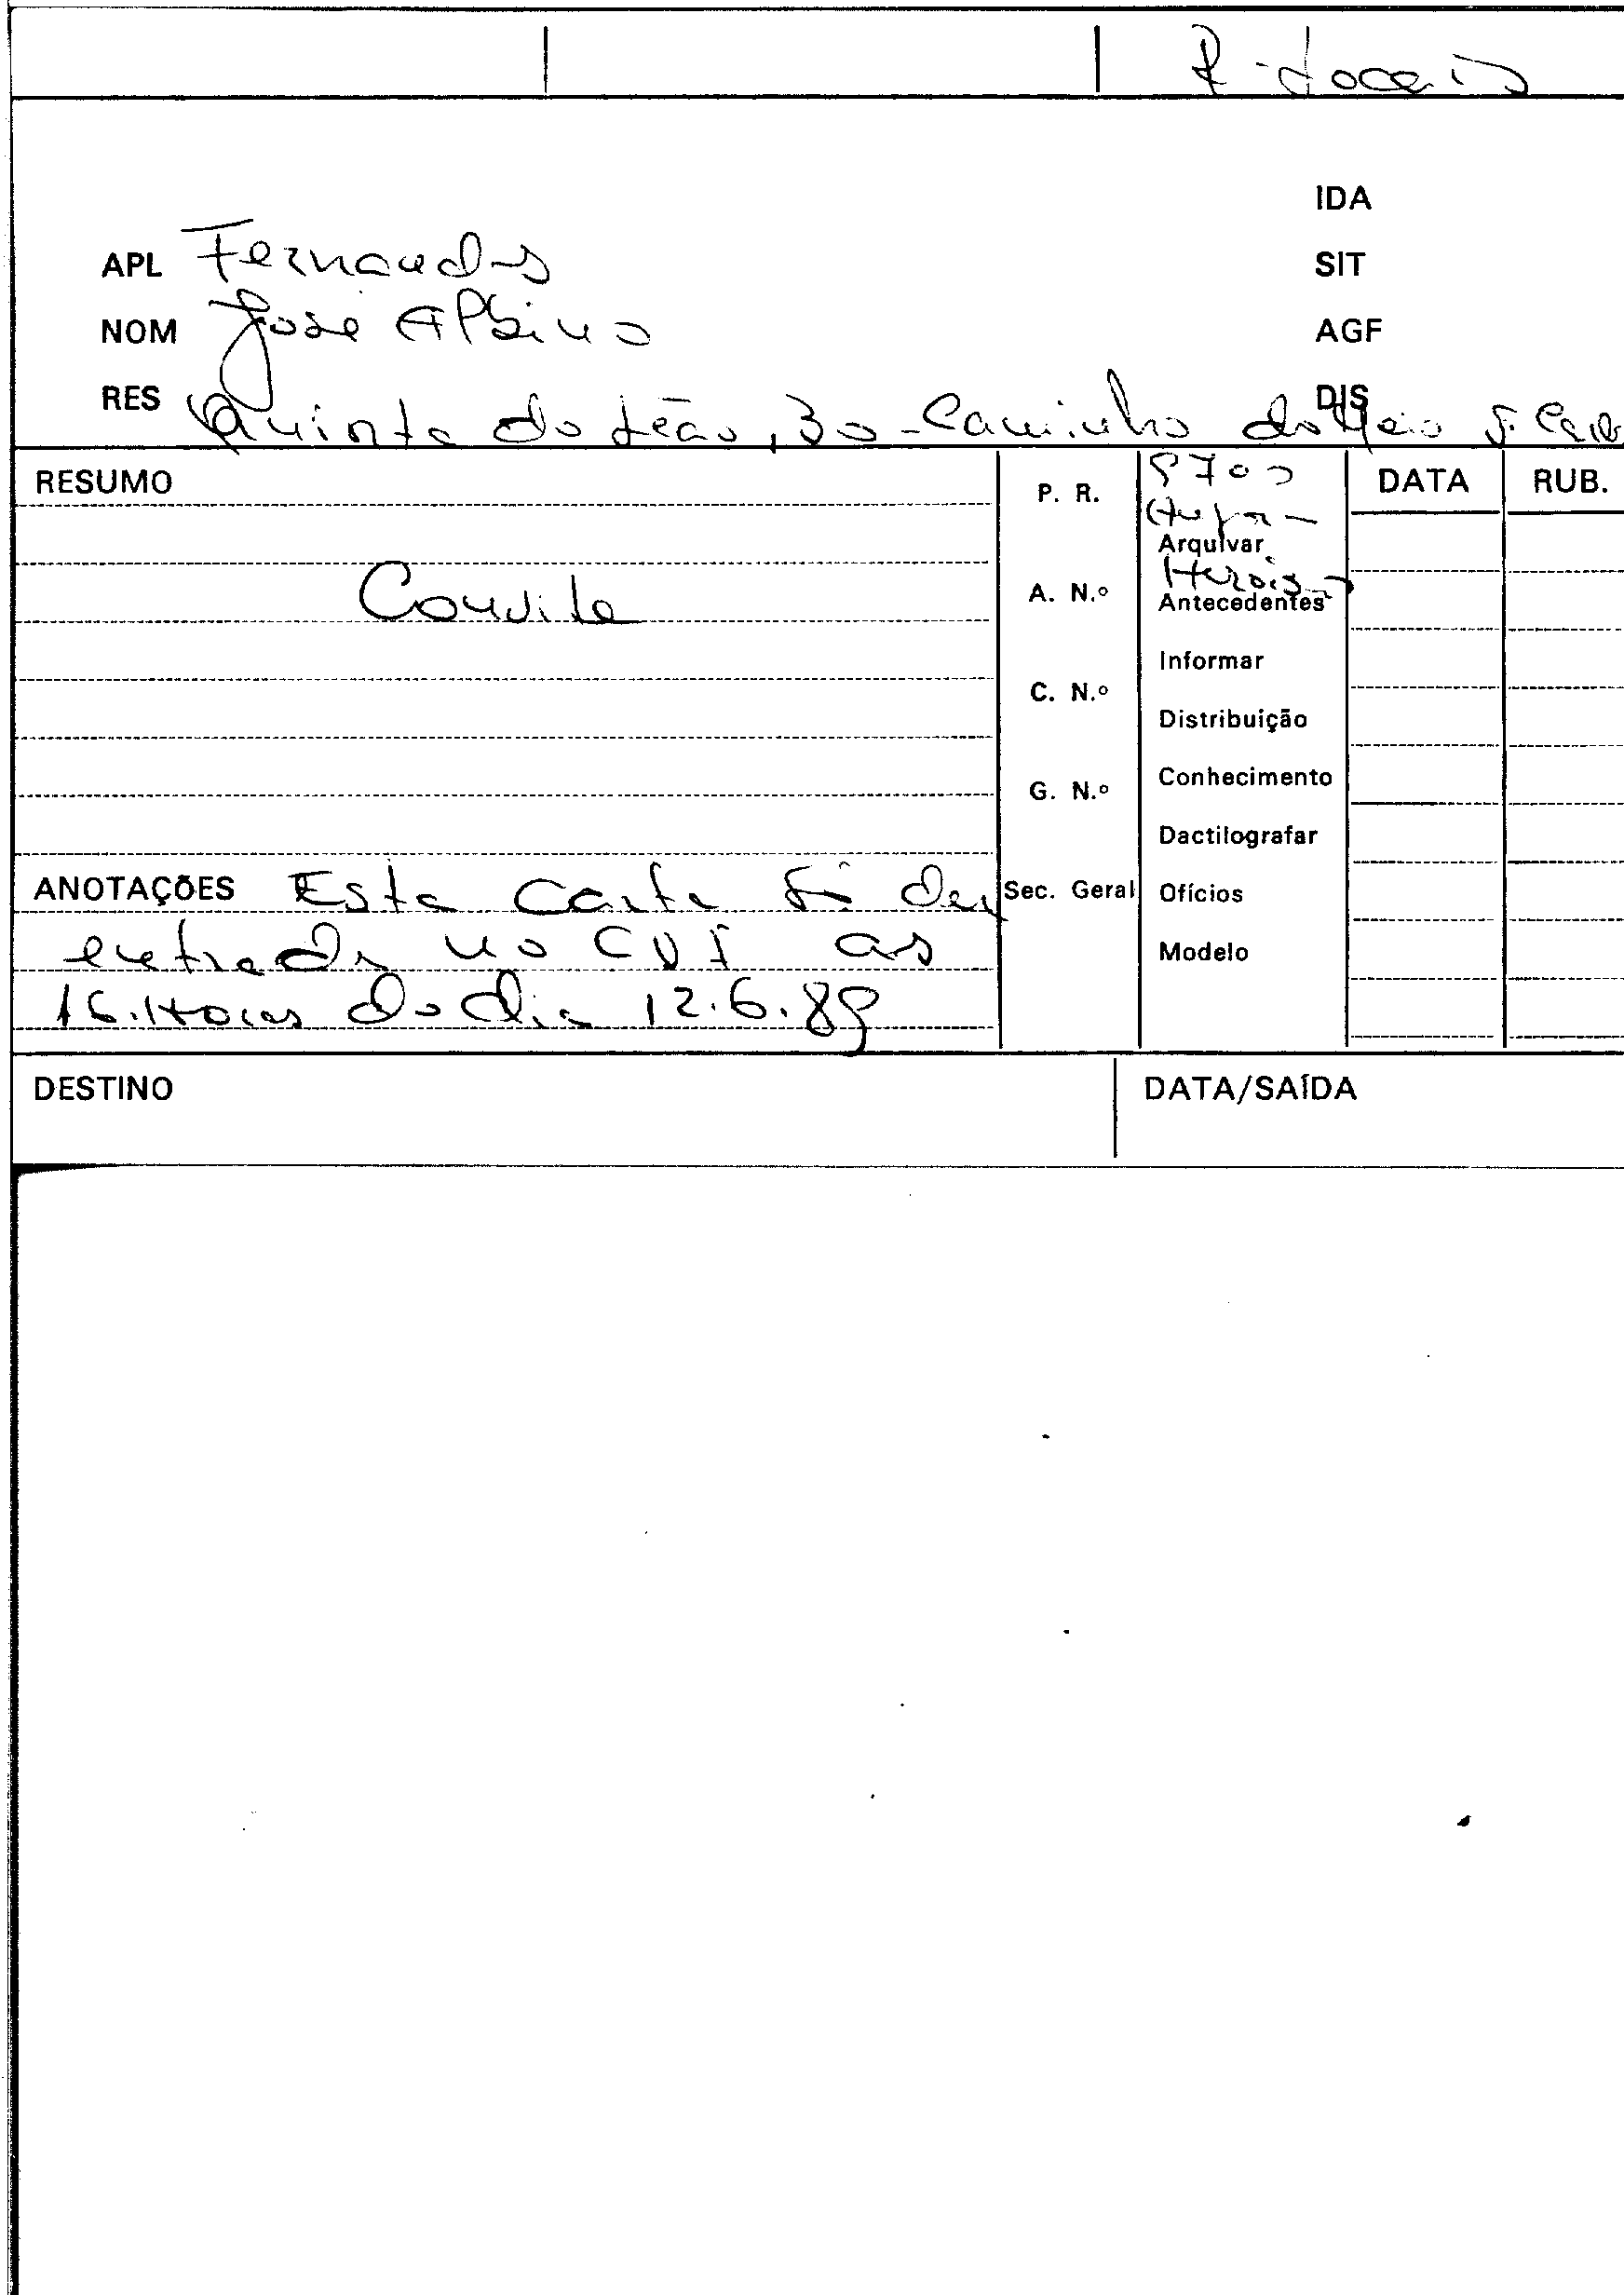 R-docais
IDA
APL Fernandes
SIT
NOM José Albino
AGF
RES Quinta do Leão, 30 - Caminho do Meio S. Carlos
DIS
RESUMO
P. R.
9700
DATA
RUB.
Angra
Arquivar
Heroismo
Convite
A. N.º
Antecedentes
Informar
C. N.º
Distribuição
G. N.º
Conhecimento
Dactilografar
ANOTAÇÕES Esta carta
Sec. Geral
Ofícios
entrada no CDI as
Modelo
16.Horas do dia 12.6.89
DESTINO
DATA/SAÍDA